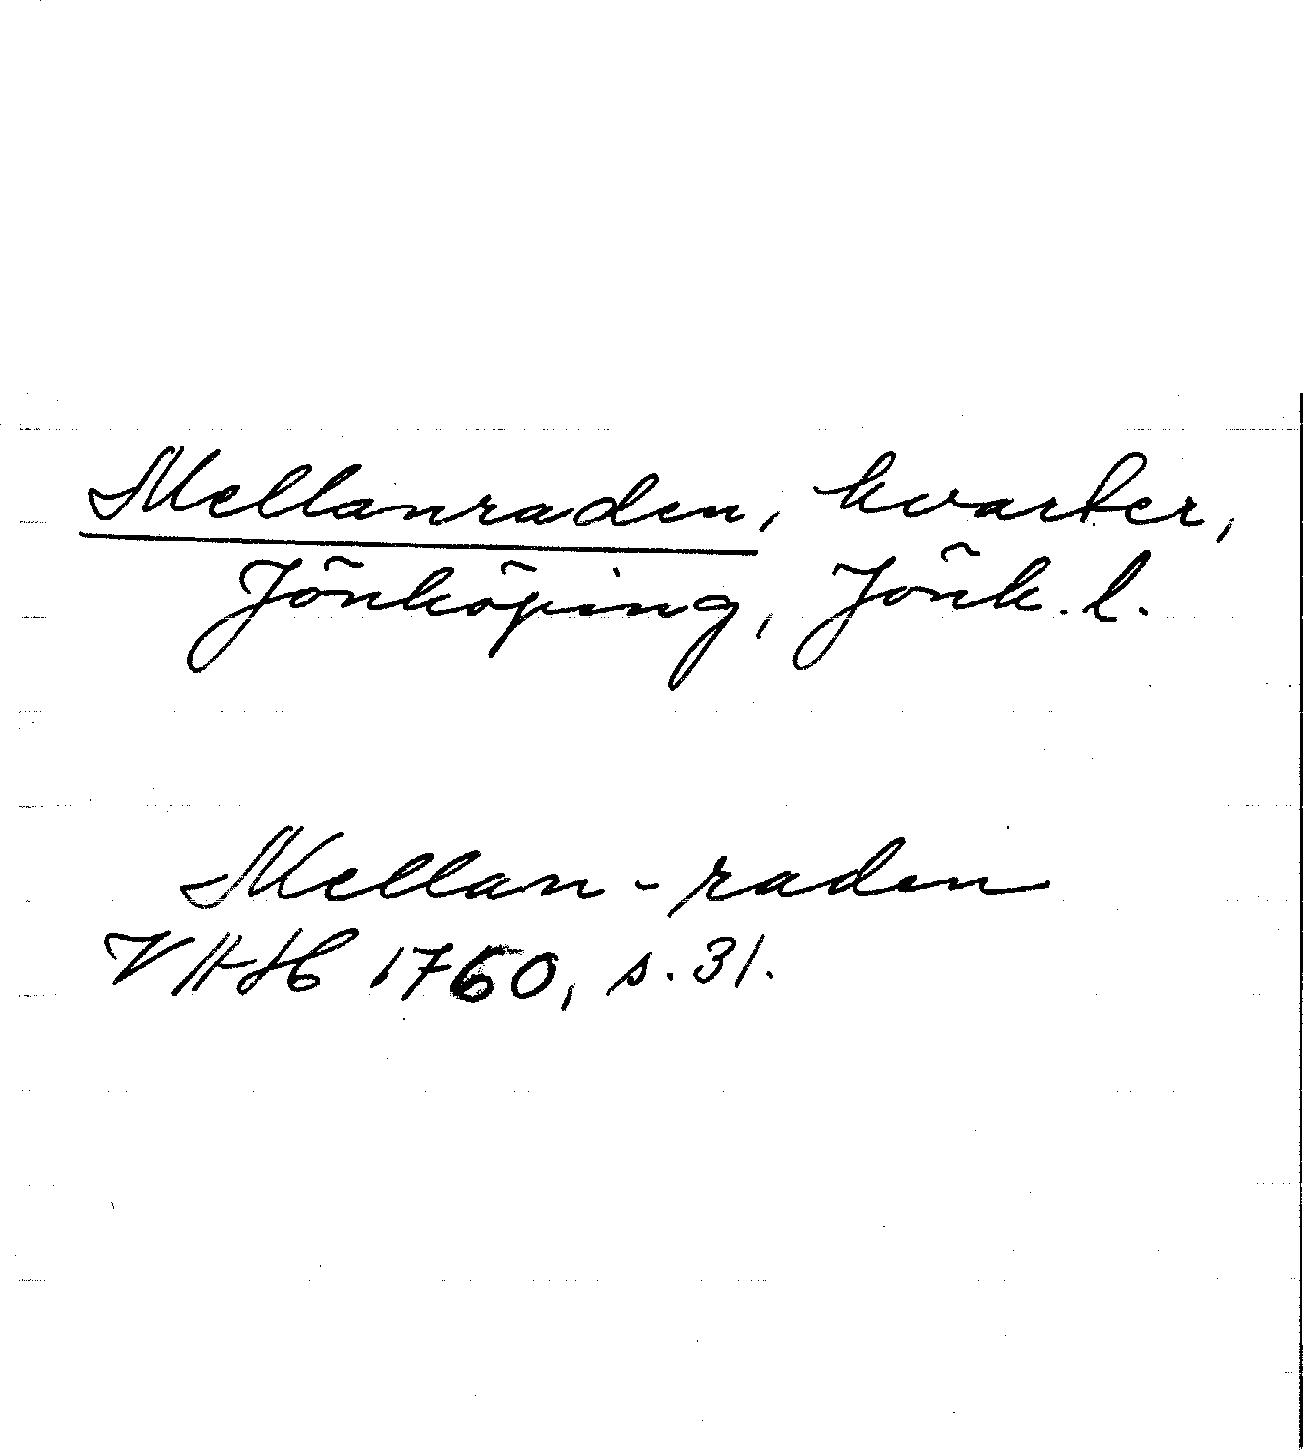 Mellanraden, kvarter,
Jönköping, Jönk. l.
Mellan-raden
VHH 1760, s. 31.